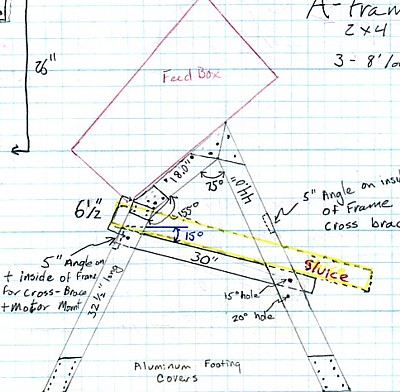 A-Fram
2 x 4
3 - 8'/0
26"
Feed Box
18.0"
75°
44.0"
5" Angle on insid
of Frame
Cross brac
6 1/2
155°
15°
5" Angle on
+ inside of Frame
For Cross-Brace
+ Motor Mount
32 1/2" long
30"
Sluice
15° hole
20° hole
Aluminum Footing
Covers